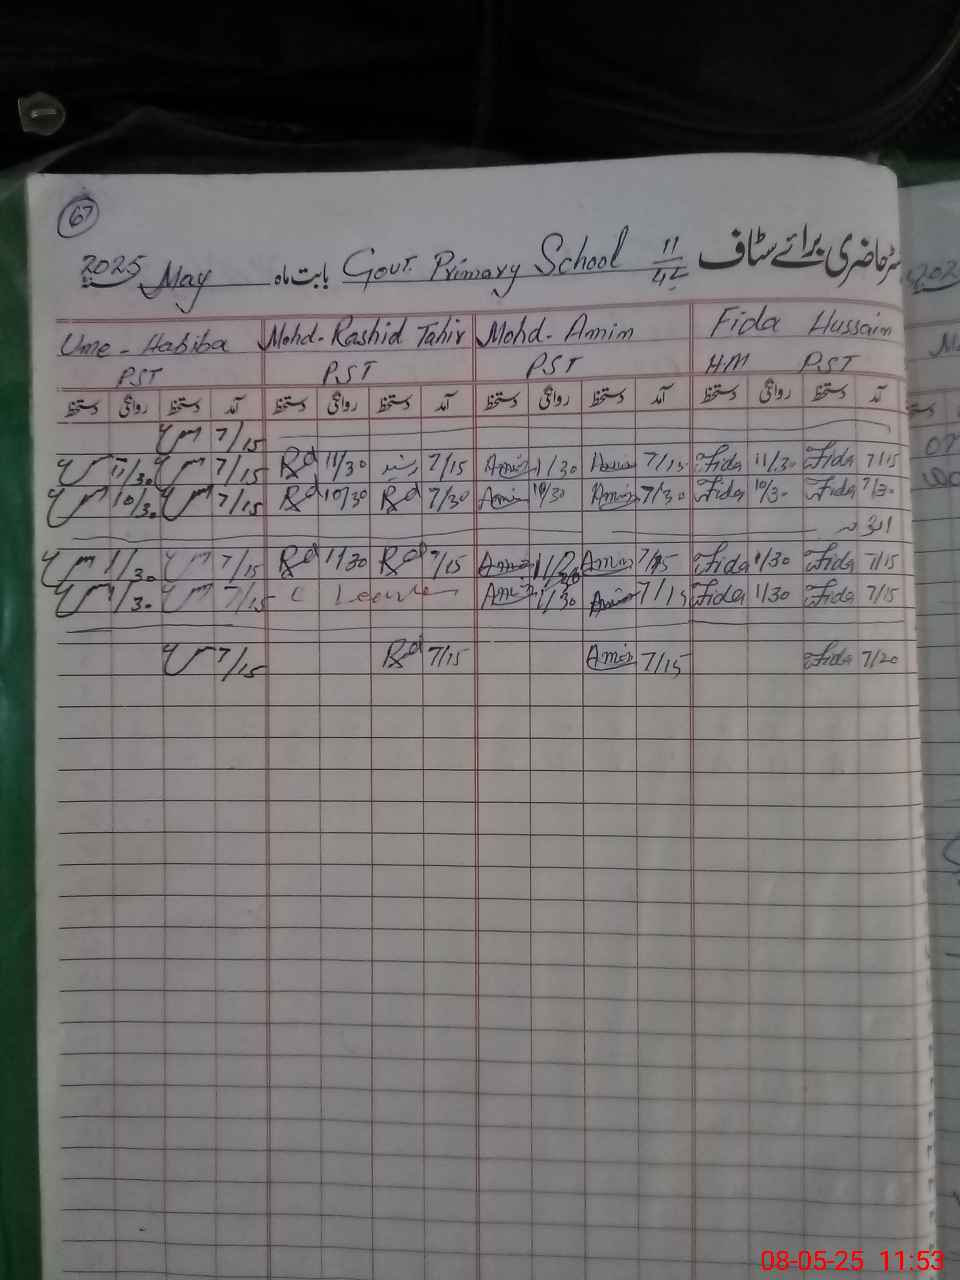 67
رجسٹر حاضری برائے سٹاف 11/4-L Govt. Primary School بابت ماہ May 2025
Fida Hussain Mohd-Amin Mohd-Rashid Tahir Ume-Habiba
H.M P.ST P.ST P.ST P.ST
آمد دستخط روانگی دستخط آمد دستخط روانگی دستخط آمد دستخط روانگی دستخط آمد دستخط روانگی دستخط
7/15
7/15 Fida 11/30 Fida 7/15 Amin 11/30 Amin 7/15 رشید 11/30 Rd 7/15 11/30
7/30 Fida 10/30 Fida 7/30 Amin 10/30 Amin 7/30 Rd 10/30 Rd 7/15 10/30
اتوار
7/15 Fida 1/30 Fida 7/15 Amin Amin 7/15 Rd 11/30 Rd 7/15 1/30
7/15 Fida 1/30 Fida 7/15 Amin 1/30 Amin C Leave 7/15 1/30
7/20 Fida 7/15 Amin 7/15 Rd 7/15
202
08-05-25 11:53